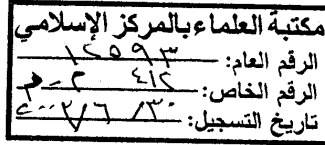 مكتبة العلماء بالمركز الإسلامي
الرقم العام: ١٢٥٩٣
الرقم الخاص: ٤١٢
تاريخ التسجيل: ٣٠/٦/